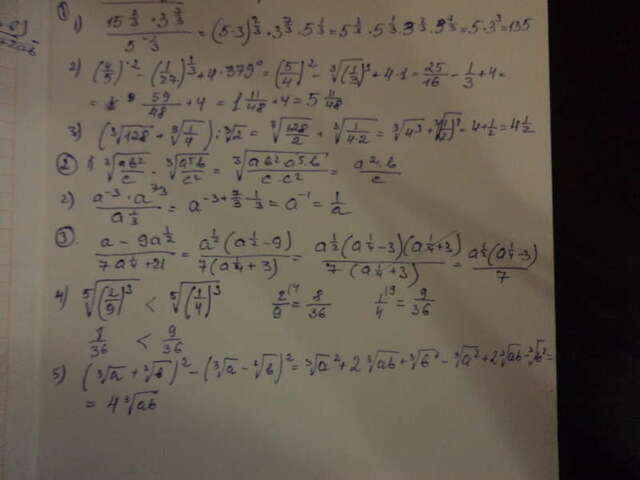 +2ab
① 1) (15^(2/3) · 3^(7/3)) / 5^(-1/3) = (5·3)^(2/3) · 3^(7/3) · 5^(1/3) = 5^(2/3) · 5^(1/3) · 3^(2/3) · 3^(7/3) = 5·3³ = 135
2) (4/5)^(-2) - (1/27)^(1/3) + 4·379⁰ = (5/4)² - ∛(1/3)³ + 4·1 = 25/16 - 1/3 + 4 =
= 59/48 + 4 = 1 11/48 + 4 = 5 11/48
3) (∛128 + ∛(1/4)) : ∛2 = ∛(128/2) + ∛(1/(4·2)) = ∛4³ + ∛(1/2)³ = 4 + 1/2 = 4 1/2
② 1) ∛(ab²/c) · ∛(a⁵b/c²) = ∛(ab²a⁵b/(c·c²)) = a²·b/c
2) (a^(-3) · a^(7/3)) / a^(1/3) = a^(-3+7/3-1/3) = a^(-1) = 1/a
③. (a - 9a^(1/2)) / (7a^(1/4) + 21) = a^(1/2)(a^(1/2) - 9) / 7(a^(1/4) + 3) = a^(1/2)(a^(1/4) - 3)(a^(1/4) + 3) / 7(a^(1/4) + 3) = a^(1/2)(a^(1/4) - 3) / 7
4) ⁵√(2/9)³ < ⁵√(1/4)³ 2/9 = 8/36 1/4 = 9/36
8/36 < 9/36
5) (∛a + ∛b)² - (∛a - ∛b)² = ∛a² + 2∛ab + ∛b² - ∛a² + 2∛ab - ∛b² =
= 4∛ab